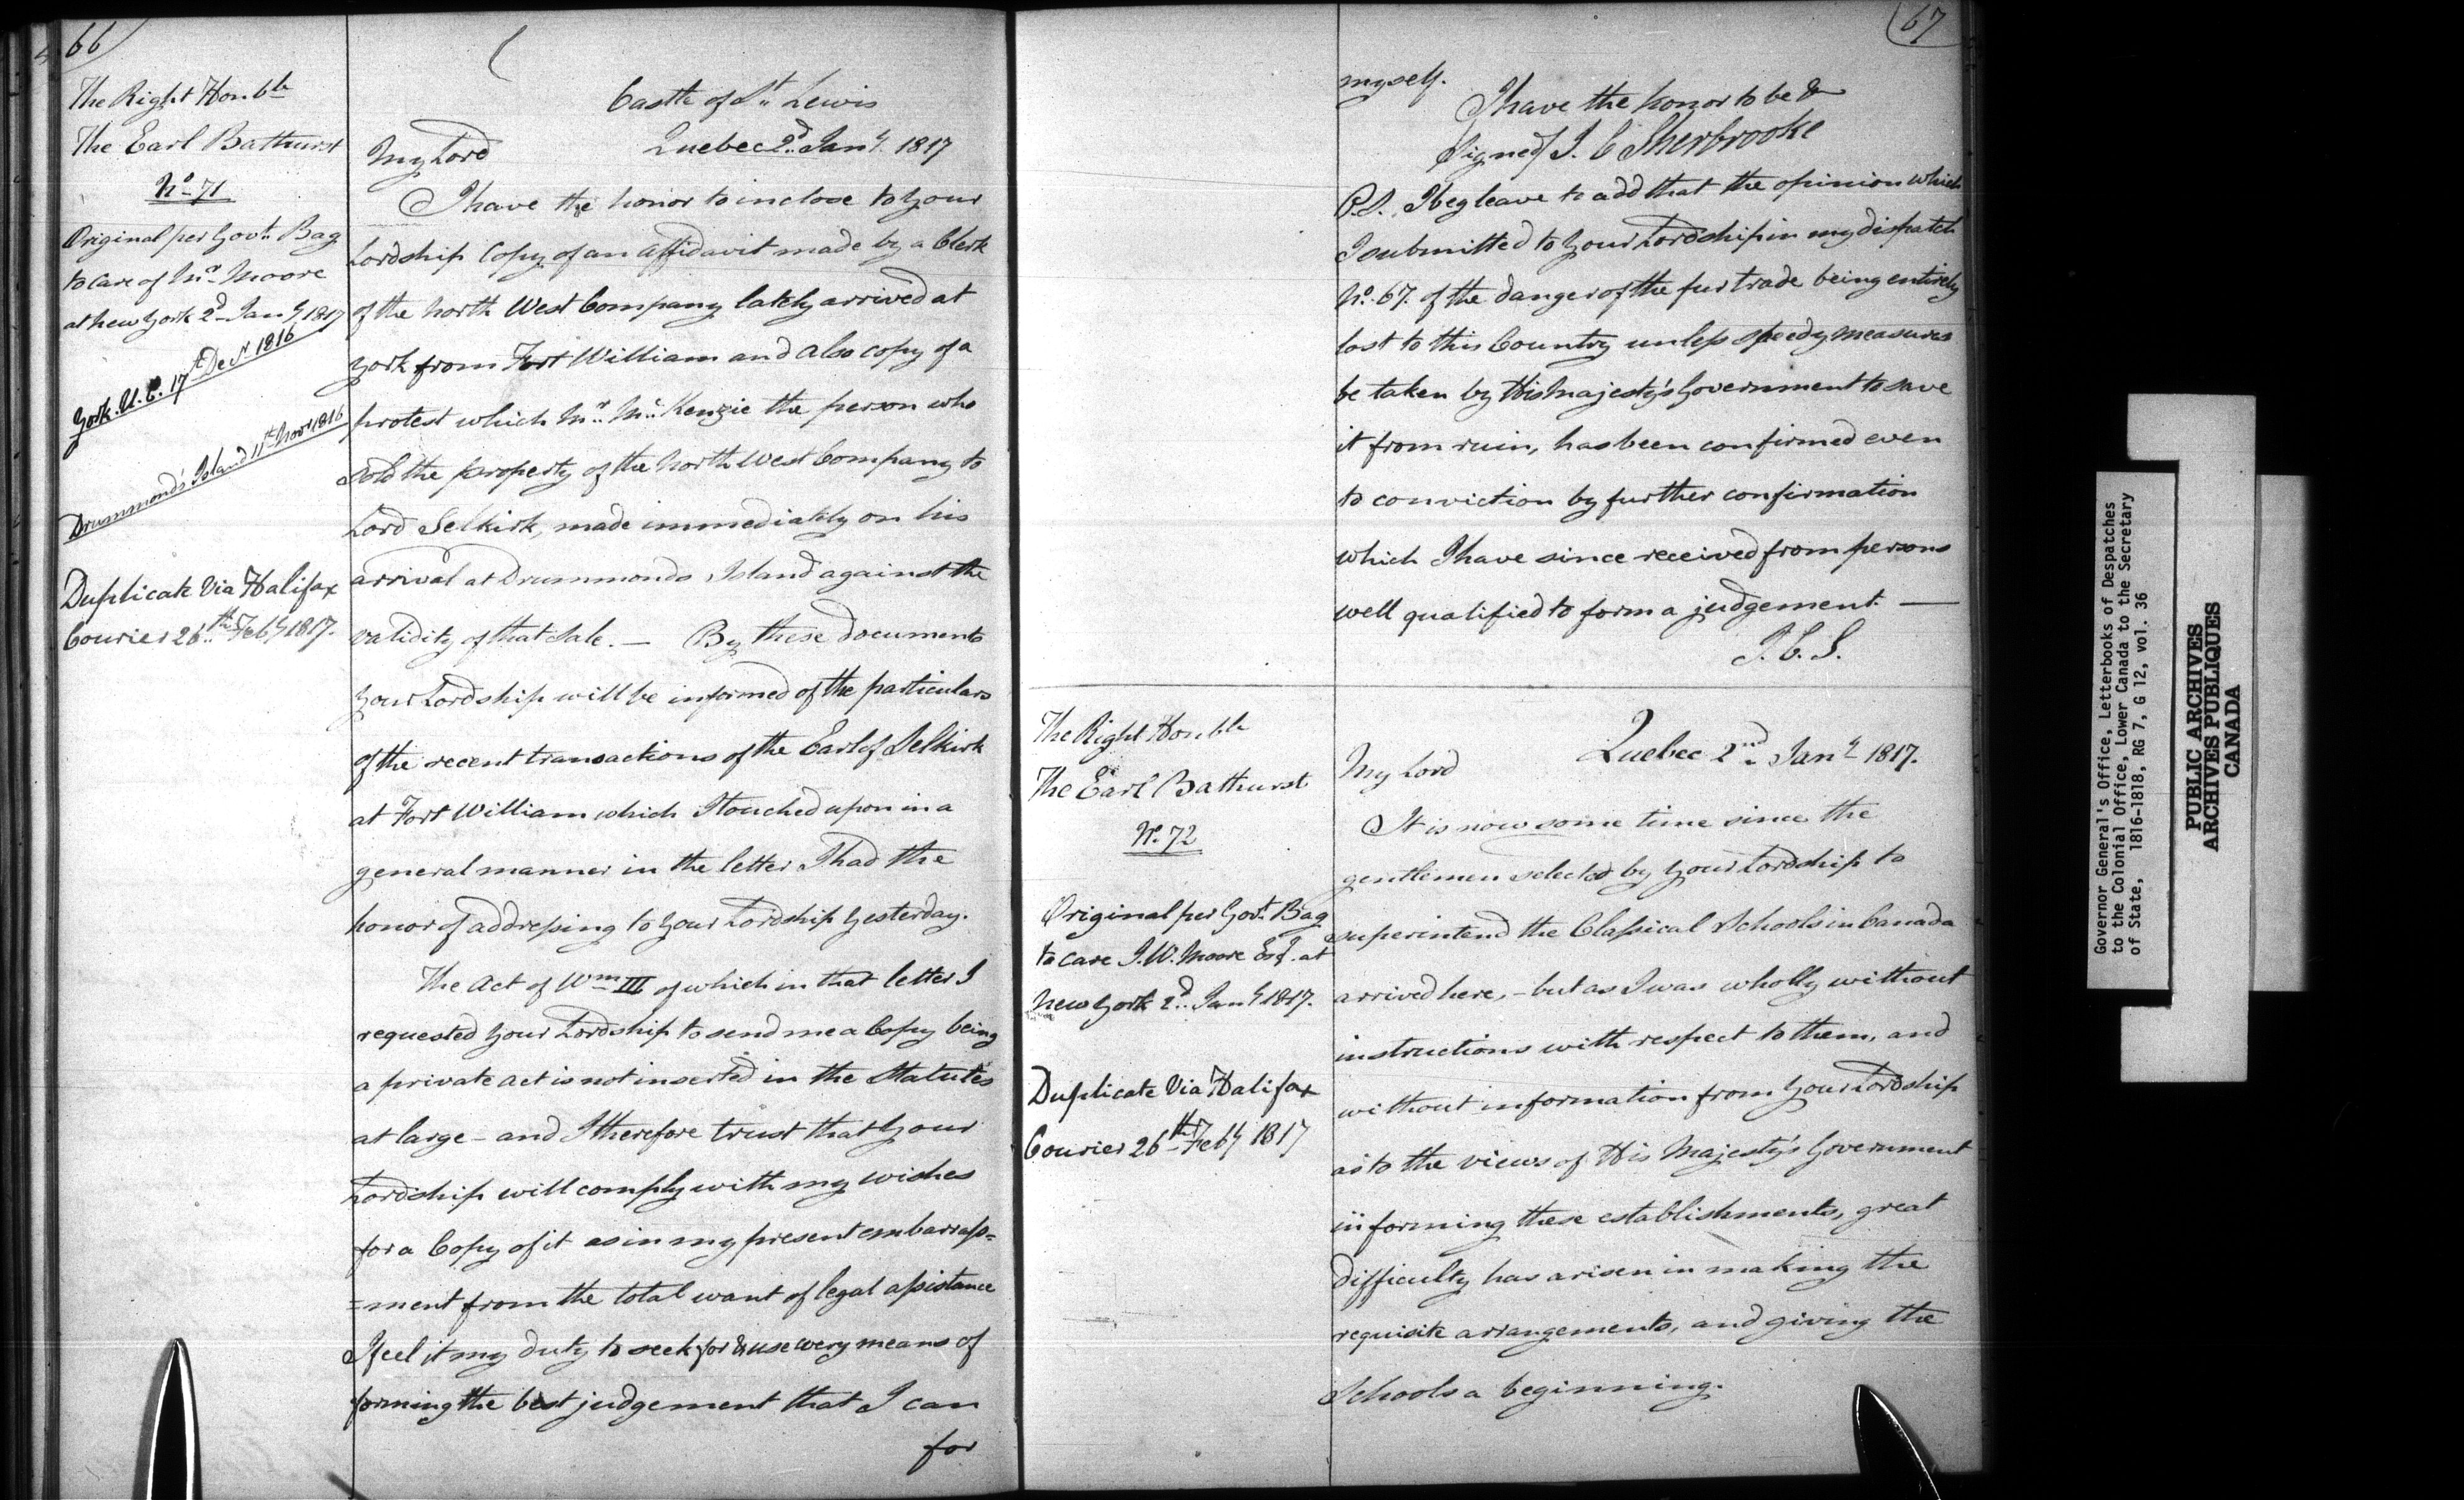 66
The Right Honble
The Earl Bathurst
No. 71
Original per Govt. Bag
to care of Mr. Moore
at New York 2d Jany 1817
York. U.C. 17th Decr 1816
Drummond's Island 11th Novr 1816
Duplicate Via Halifax
Courier 26th Feby 1817.
Castle of St. Lewis
Quebec 2d. Jany. 1817
My Lord
I have the honor to inclose to Your
Lordship Copy of an affidavit made by a Clerk
of the North West Company lately arrived at
York from Fort William and also copy of a
protest which Mr. Mc.Kenzie the person who
sold the property of the North West Company to
Lord Selkirk, made immediately on his
arrival at Drummonds Island against the
validity of that Sale. — By these documents
Your Lordship will be informed of the particulars
of the recent transactions of the Earl of Selkirk
at Fort William which I touched upon in a
general manner in the letter I had the
honor of addressing to Your Lordship Yesterday.
The Act of Wm III of which in that letter I
requested Your Lordship to send me a Copy being
a private act is not inserted in the Statutes
at large – and I therefore trust that Your
Lordship will comply with my wishes
for a Copy of it as in my present embarrass=
=ment from the total want of legal assistance
I feel it my duty to seek for & use every means of
forming the best judgement that I can
for
67
myself.
I have the honor to be &
Signed J. C Sherbrooke
P.S. I beg leave to add that the opinion which
I submitted to Your Lordship in my dispatch
No. 67. of the danger of the fur trade being entirely
lost to this Country unless speedy measures
be taken by His Majesty's Government to save
it from ruin, has been confirmed even
to conviction by further confirmation
which I have since received from persons
well qualified to form a judgement. —
J. C. S.
The Right Honble
The Earl Bathurst
No. 72
Original per Govt. Bag
to care J. W. Moore Esq. at
New York 2d. Jany 1817.
Duplicate Via Halifax
Courier 26th Feby 1817
Quebec 2nd. Jany 1817.
My Lord
It is now some time since the
gentlemen selected by Your Lordship to
superintend the Classical Schools in Canada
arrived here, – but as I was wholly without
instructions with respect to them, and
without information from Your Lordship
as to the views of His Majesty's Government
in forming these establishments, great
difficulty has arisen in making the
requisite arrangements, and giving the
Schools a beginning.
Governor General's Office, Letterbooks of Despatches
to the Colonial Office, Lower Canada to the Secretary
of State, 1816-1818, RG 7, G 12, vol. 36
PUBLIC ARCHIVES
ARCHIVES PUBLIQUES
CANADA